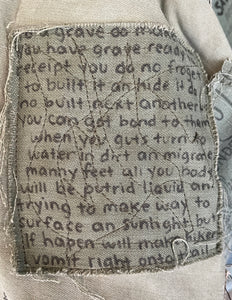 grave do it
you have grave ready
receipt you do no froget
to built it an hide it do
no built next anotherb
you can get bond to them
when you guts turn to
water in dirt an migrate
manny feet all you body
will be putrid liquid an
trying to make way to
surface an sunlight but
if hapen will mak
vomit right onto